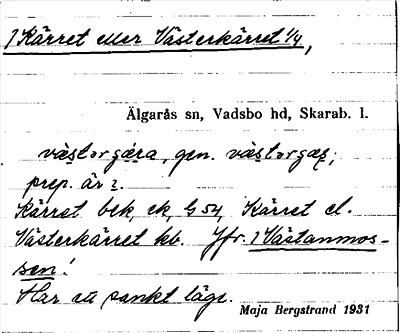 1 Kärret eller Västerkärret 1/4,
Älgarås sn, Vadsbo hd, Skarab. l.
västərgæra, gen. västərgæʀ;
prep. är 2.
Kärret bek, ek, G 54, Kärret el.
Västerkärret kb. Jfr. 1 Västanmos-
sen!
Har ett sankt läge.
Maja Bergstrand 1931